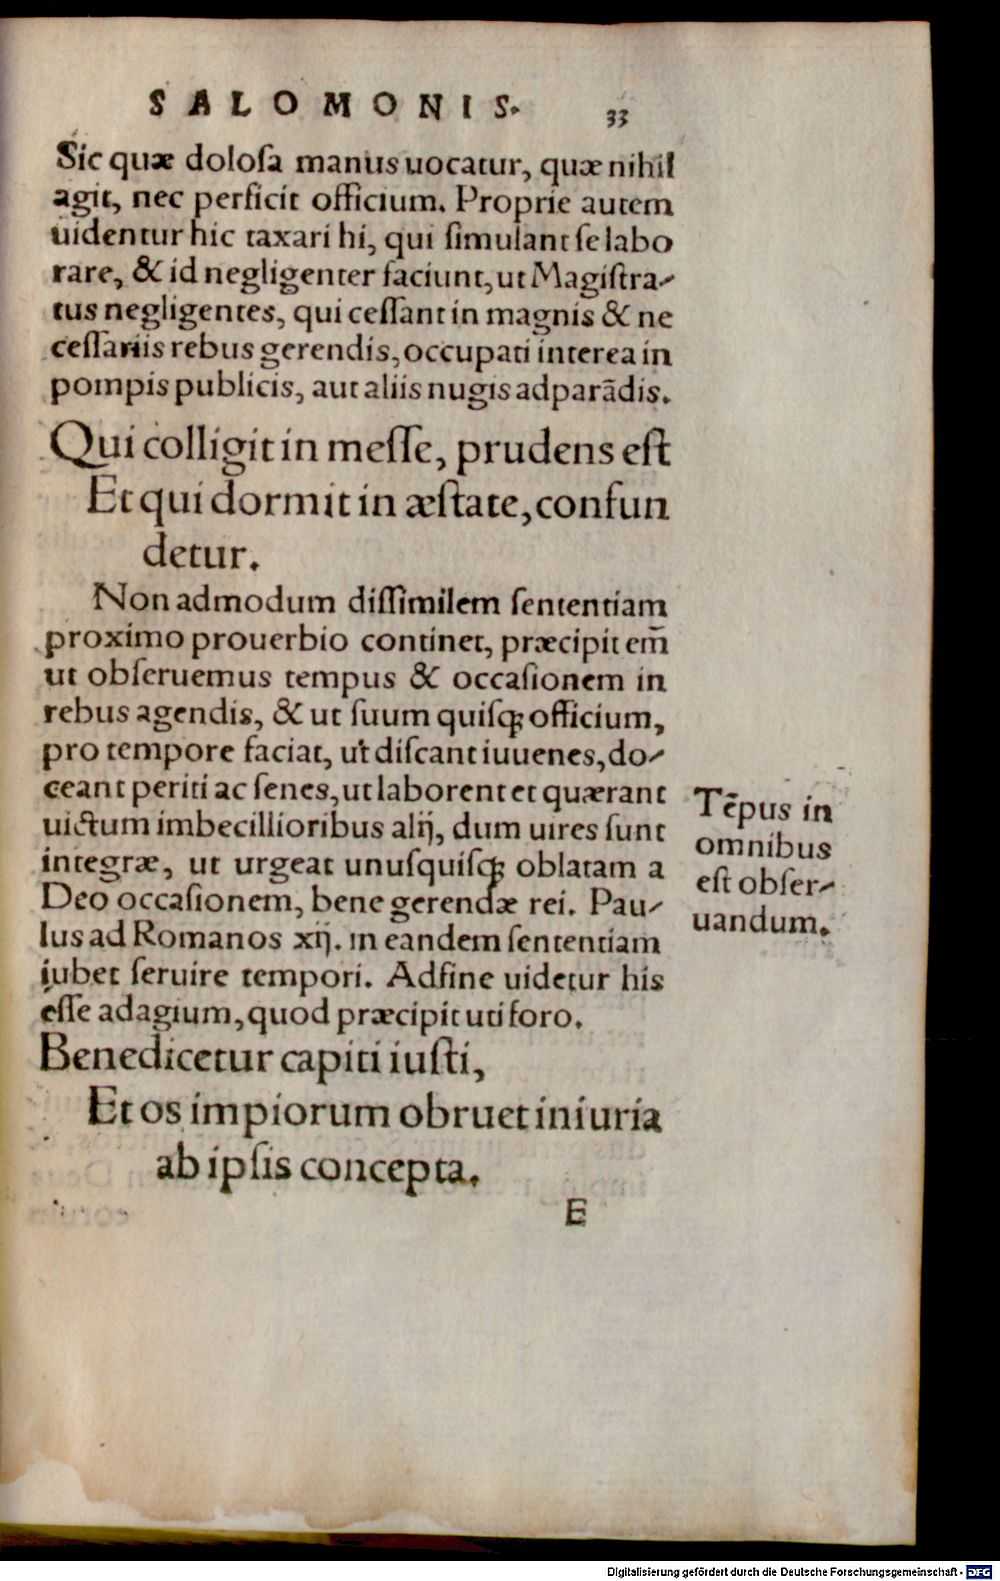 SALOMONIS. 33
Sic quæ dolosa manus uocatur, quæ nihil
agit, nec perficit officium. Proprie autem
uidentur hic taxari hi, qui simulant se labo
rare, & id negligenter faciunt, ut Magistra-
tus negligentes, qui cessant in magnis & ne
cessariis rebus gerendis, occupati interea in
pompis publicis, aut aliis nugis adparādis.
Qui colligit in messe, prudens est
Et qui dormit in æstate, confun
detur.
Non admodum dissimilem sententiam
proximo prouerbio continet, præcipit em̄
ut obseruemus tempus & occasionem in
rebus agendis, & ut suum quisqꝫ officium,
pro tempore faciat, ut discant iuuenes, do-
ceant periti ac senes, ut laborent et quærant
uictum imbecillioribus alij, dum uires sunt
integræ, ut urgeat unusquisqꝫ oblatam a
Deo occasionem, bene gerendæ rei. Pau-
lus ad Romanos xij. in eandem sententiam
iubet seruire tempori. Adfine uidetur his
esse adagium, quod præcipit uti foro.
Tēpus in
omnibus
est obser-
uandum.
Benedicetur capiti iusti,
Et os impiorum obruet iniuria
ab ipsis concepta.
E
Digitalisierung gefördert durch die Deutsche Forschungsgemeinschaft - DFG